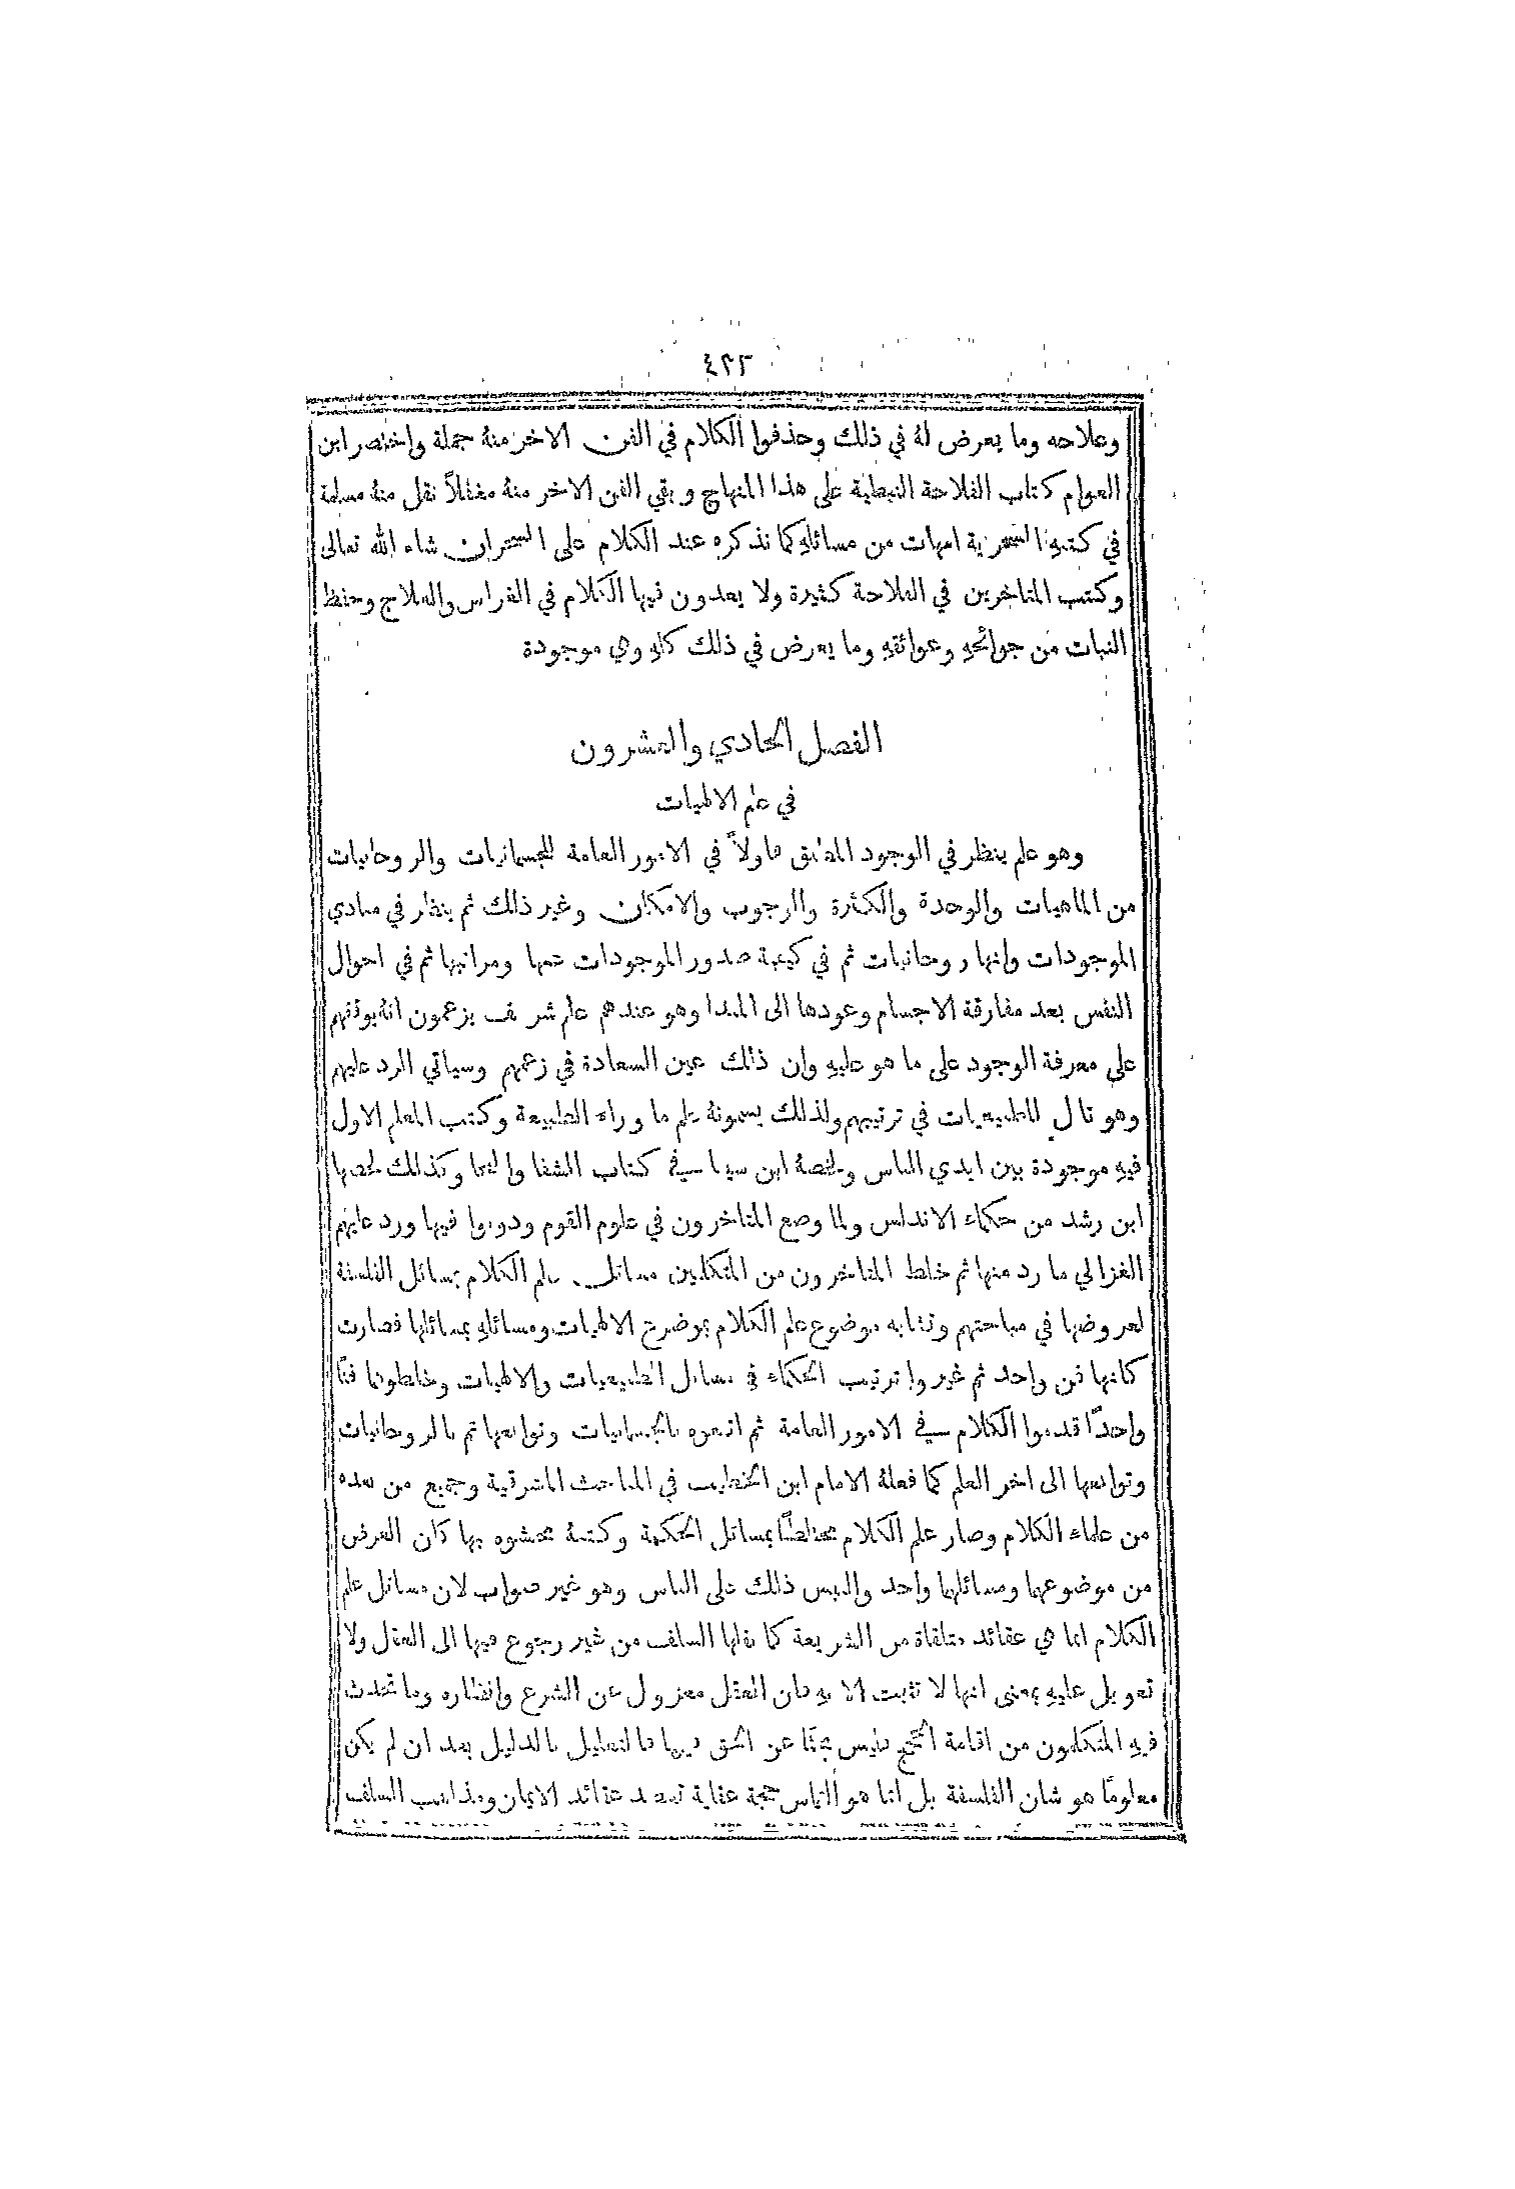 ٤٣٢
وعلاجه وما يعرض لهُ في ذلك وحذفوا الكلام في الفن الاخر منهُ جملة واختصر ابن
العوام كتاب الفلاحة النبطية على هذا المنهاج وبقي الفن الاخر منهُ مغفلاً نقل منهُ مسلمة
في كتبهِ السحرية امهات من مسائلهِ كما نذكره عند الكلام على السحر ان شاء الله تعالى
وكتب المتاخرين في الفلاحة كثيرة ولا يعدون فيها الكلام في الغراس والعلاج وحفظ
النبات من جوائحهِ وعوائقهِ وما يعرض في ذلك كلهِ وهي موجودة
الفصل الحادي والعشرون
في علم الالهيات
وهو علم ينظر في الوجود المطلق فاولاً في الامور العامة للجسمانيات والروحانيات
من الماهيات والوحدة والكثرة والوجوب والامكان وغير ذلك ثم ينظر في مبادي
الموجودات وانها روحانيات ثم في كيفية صدور الموجودات عنها ومراتبها ثم في احوال
النفس بعد مفارقة الاجسام وعودها الى المبدا وهو عندهم علم شريف يزعمون انهُ يوقفهم
على معرفة الوجود على ما هو عليهِ وان ذلك عين السعادة في زعمهم وسياتي الرد عليهم
وهو تال للطبيعيات في ترتيبهم ولذلك يسمونهُ علم ما وراء الطبيعة وكتب المعلم الاول
فيهِ موجودة بين ايدي الناس ولخصهُ ابن سينا في كتاب الشفا والنجا وكذلك لخصها
ابن رشد من حكماء الاندلس ولما وضع المتاخرون في علوم القوم ودونوا فيها ورد عليهم
الغزالي ما رد منها ثم خلط المتاخرون من المتكلمين مسائل علم الكلام بمسائل الفلسفة
لعروضها في مباحثهم وتشابه موضوع علم الكلام بموضوع الالهيات ومسائلهِ بمسائلها فصارت
كانها فن واحد ثم غيروا ترتيب الحكماء في مسائل الطبيعيات والالهيات وخلطوها فنًا
واحدًا قدموا الكلام في الامور العامة ثم اتبعوه بالجسمانيات وتوابعها ثم بالروحانيات
وتوابعها الى اخر العلم كما فعلهُ الامام ابن الخطيب في المباحث المشرقية وجميع من بعده
من علماء الكلام وصار علم الكلام مختلطًا بمسائل الحكمة وكتبهُ محشوه بها كان الغرض
من موضوعهما ومسائلهما واحد والتبس ذلك على الناس وهو غير صواب لان مسائل علم
الكلام انما هي عقائد متلقاة من الشريعة كما نقلها السلف من غير رجوع فيها الى العقل ولا
تعويل عليهِ بمعنى انها لا تثبت الا بهِ فان العقل معزول عن الشرع وانظاره وما تحدث
فيهِ المتكلمون من اقامة الحجج فليس بحثًا عن الحق فيها فالتعليل بالدليل بعد ان لم يكن
معلومًا هو شان الفلسفة بل انما هو التماس حجة عقلية تعضد عقائد الايمان ومذاهب السلف